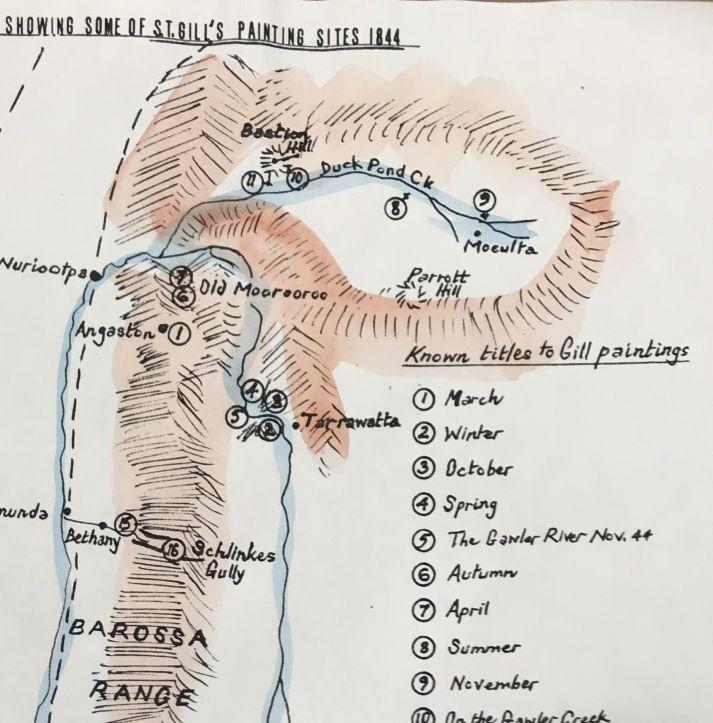 SHOWING SOME OF S.T.GILL'S PAINTING SITES 1844
Bastion
Hill
11 10 Duck Pond Ck
8
9
Moculta
Nuriootpa
7
6
Old Moorooroo
Parrott
Hill
Angaston 1
Known titles to Gill paintings
1 March
4
5
2
Tarrawatta
2 Winter
3 October
4 Spring
munda
Bethany
15
16 Schlinkes
Gully
5 The Gawler River Nov. 44
6 Autumn
7 April
BAROSSA
RANGE
8 Summer
9 November
10 On the Gawler Creek